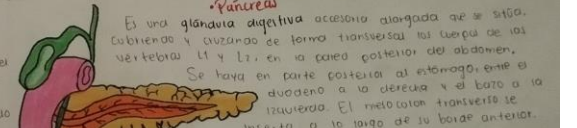 •Páncreas
Es una glándula digestiva accesoria alargada que se sitúa.
Cubriendo y cruzando de forma transversal los cuerpo de las
vertebras L1 y L2, en la pared posterior del abdomen.
Se haya en parte posterior al estómago, entre el
duodeno a la derecha y el bazo a la
izquierda. El mesocolon transverso se
a lo largo de su borde anterior.